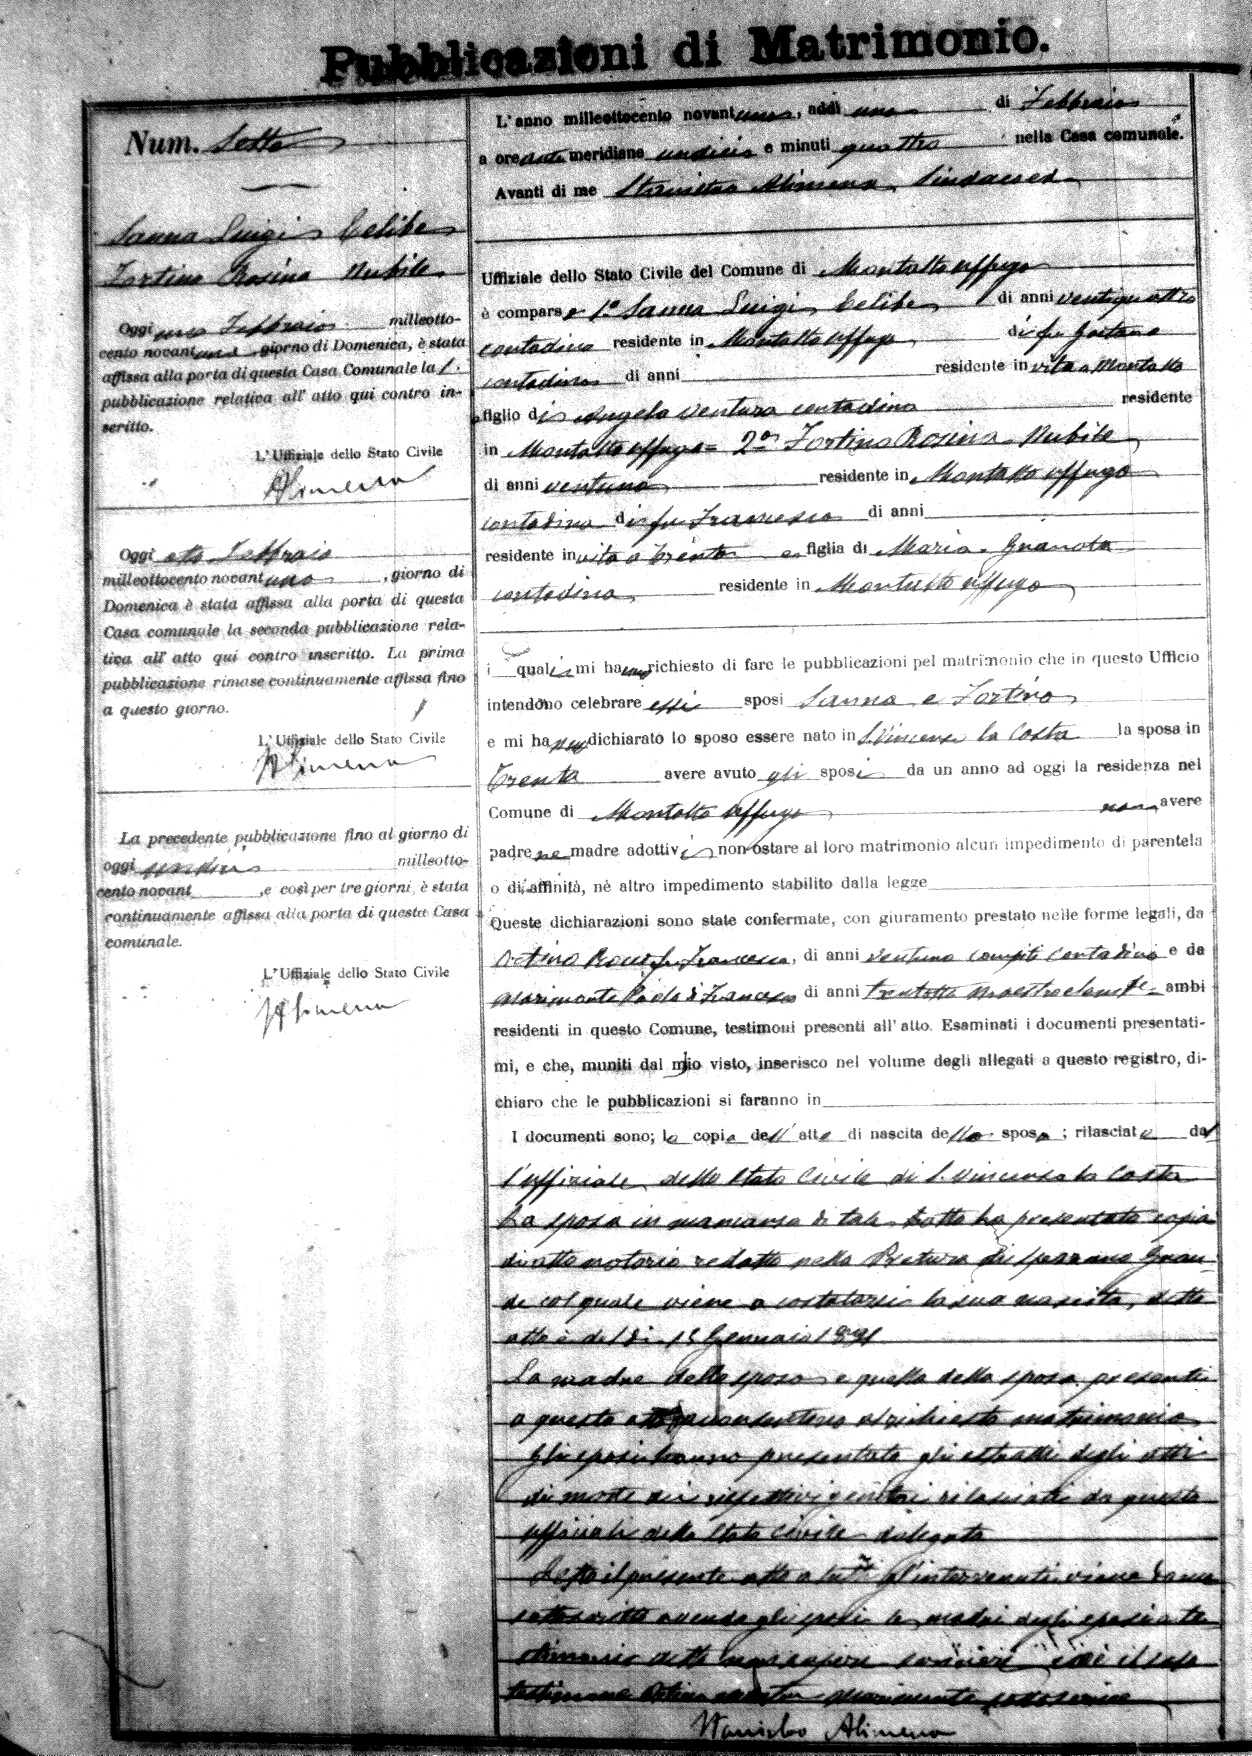 Pubblicazioni di Matrimonio.
Num. Sette
Sanna Luigi Celibe
Fortino Rosina Nubile
Oggi uno Febbraio milleotto-
cento novantuno giorno di Domenica, è stata
affissa alla porta di questa Casa Comunale la 1.
pubblicazione relativa all' atto qui contro in-
scritto.
L'Uffiziale dello Stato Civile
Alimena
Oggi otto Febbraio
milleottocento novantuno, giorno di
Domenica è stata affissa alla porta di questa
Casa comunale la seconda pubblicazione rela-
tiva all' atto qui contro inscritto. La prima
pubblicazione rimase continuamente affissa fino
a questo giorno.
L'Uffiziale dello Stato Civile
Alimena
La precedente pubblicazione fino al giorno di
oggi undici milleotto-
cento novant , e così per tre giorni, è stata
continuamente affissa alla porta di questa Casa
comunale.
L'Uffiziale dello Stato Civile
Alimena
L'anno milleottocento novantuno, addì uno di Febbraio
a ore antemeridiane undici e minuti quattro nella Casa comunale.
Avanti di me Stanislao Alimena Sindaco
Uffiziale dello Stato Civile del Comune di Montalto Uffugo
è comparso 1° Sanna Luigi Celibe di anni ventiquattro
contadino residente in Montalto Uffugo di fu Gaetano
contadino di anni residente in vita a Montalto
figlio di Angela Ventura contadina residente
in Montalto Uffugo = 2° Fortino Rosina Nubile
di anni ventuno residente in Montalto Uffugo
contadina di fu Francesco di anni
residente in vita a Trenta e figlia di Maria Granata
contadina residente in Montalto Uffugo
i quali mi hanno richiesto di fare le pubblicazioni pel matrimonio che in questo Ufficio
intendono celebrare essi sposi Sanna e Fortino
e mi hanno dichiarato lo sposo essere nato in S. Vincenzo la Costa la sposa in
Trenta avere avuto gli sposi da un anno ad oggi la residenza nel
Comune di Montalto Uffugo non avere
padre ne madre adottivi non ostare al loro matrimonio alcun impedimento di parentela
o di affinità, nè altro impedimento stabilito dalla legge
Queste dichiarazioni sono state confermate, con giuramento prestato nelle forme legali, da
fu Francesco, di anni ventuno compiti contadino e da
Marimonte Paolo di Francesco di anni trentotto maestro elem.re ambi
residenti in questo Comune, testimoni presenti all' atto. Esaminati i documenti presentati-
mi, e che, muniti dal mio visto, inserisco nel volume degli allegati a questo registro, di-
chiaro che le pubblicazioni si faranno in
I documenti sono; la copia dell'atto di nascita dello sposo; rilasciata dal
l'uffiziale dello Stato Civile di S. Vincenzo la Costa
La sposa in mancanza di tale atto ha presentato copia
di atto notorio redatto nella Pretura di Spezzano Gran-
de col quale viene a costatarsi la sua nascita, detto
atto è del dì 15 Gennaio 1891
La madre dello sposo e quella della sposa presenti
a questo atto acconsentono al richiesto matrimonio
Gli sposi hanno presentato gli estratti degli atti
di morte dei rispettivi genitori rilasciati da questo
uffiziale dello Stato Civile delegato
Letto il presente atto a tutti gl'intervenuti viene da me
sottoscritto avendo gli sposi le madri degli sposi
detto non sapere scrivere il solo
testimone Marimonte sottoscrive
Stanislao Alimena